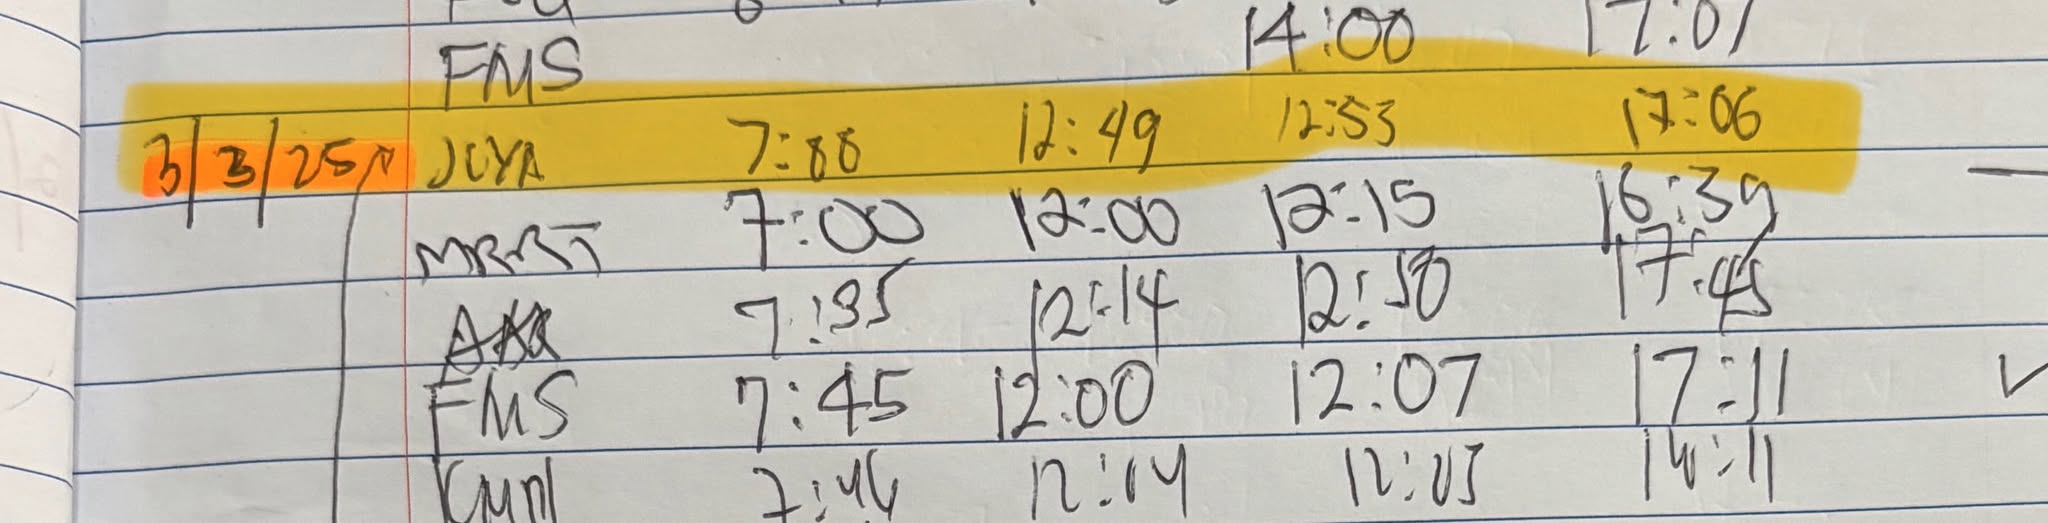 FMS 14:00 17:01
3/3/25 JOYA 7:88 12:49 12:53 17:06
MRRT 7:00 12:00 12:15 16:39
7:35 12:14 12:50 17:45
FMS 7:45 12:00 12:07 17:11
12:04